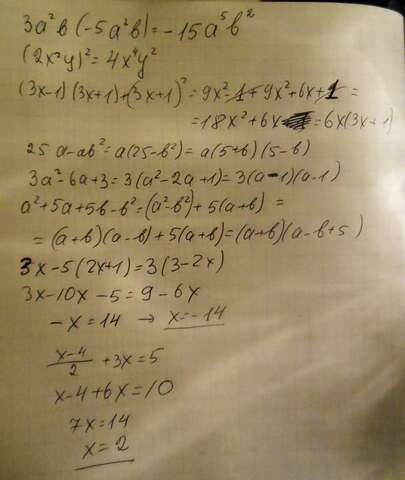 3a²b(-5a²b)=-15a⁵b²
(2x²y)²=4x⁴y²
(3x-1)(3x+1)+(3x+1)²=9x²-1+9x²+6x+1=
=18x²+6x=6x(3x+1)
25a-ab²=a(25-b²)=a(5+b)(5-b)
3a²-6a+3=3(a²-2a+1)=3(a-1)(a-1)
a²+5a+5b-b²=(a²-b²)+5(a+b)=
=(a+b)(a-b)+5(a+b)=(a+b)(a-b+5)
3x-5(2x+1)=3(3-2x)
3x-10x-5=9-6x
-x=14 → x=-14
(x-4)/2+3x=5
x-4+6x=10
7x=14
x=2